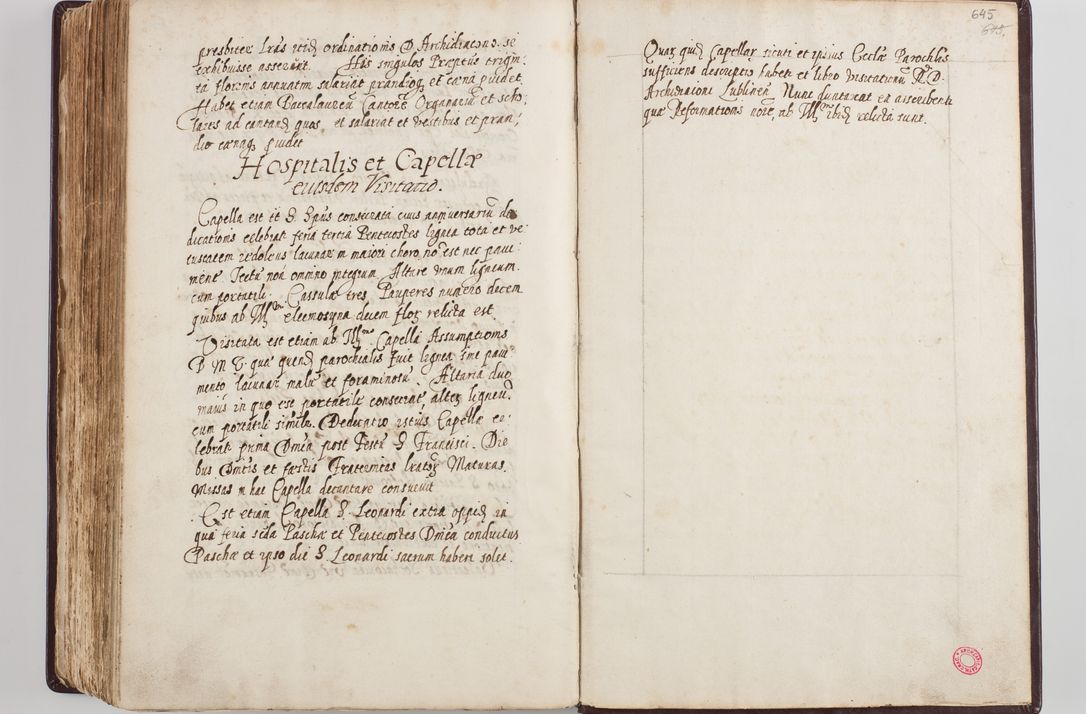 presbiter lras itid ordinationis D. Archidiacono. se
exhibuisse asserunt. Hos singulos Preptus trigin:
ta florenis annuatim salariat prandioq et cœna puidet
Habet etiam Baccalaureũ Cantorẽ Organariũ et scho
lares ad cantand quos et salariat et vestibus et pran:
dio cœnaq puidet
Hospitalis et Capellæ
eiusdem Visitatio.
Capella est tt S. Spũs consecrata cuius anniversariũ de
dicationis celebrat feria tertia Pentecostes lignea tota et ve
tustatem redolens lacunar in maiori choro nõ est nec paui:
ment Tectũ non omnino integrum Altare unum ligneum.
cum portatili. Cassulæ tres Pauperes numero decem
quibus ab Illmo elemosyna decem flor relicta est
Visitata est etiam ab Illmo Capella Assumptionis
B M V. quæ quond parochialis fuit lignea sine paui
mento lacunar malũ et foraminosũ. Altaria duo
maius in quo est portatile consecrat, alter ligneũ
cum portatili simile. Dedicatio istius Capellæ ce:
lebrat prima Dnica post Festũ S. Francisci. Die
bus Dnicis et festis Fraternitas lrator Maturas
Missas in hac Capella decantare consuevit
Est etiam Capella S. Leonardi extra oppid in
qua feria scda Paschæ et Pentecostes Dnica conductus
Paschæ et ipso die S. Leonardi sacrum haberi solet.
645
645.
Quar quid Capellar sicuti et ipsius Ecclæ Parochlis
sufficiens descriptio habet et libro visitationũ R. D.
Archidiaconi Lublinen. Nunc duntaxat ea asscribent
quæ Reformationis noie, ab Illmo ibid relicta sunt.